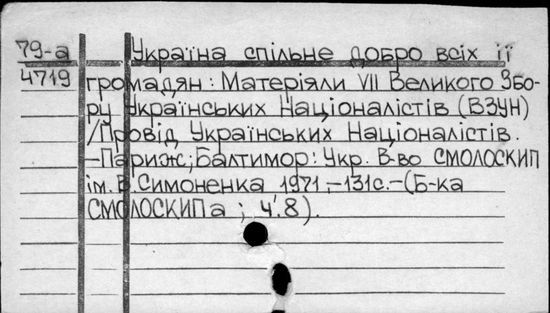 79-а Україна спільне добро всіх її
4719 громадян: Матеріяли VII Великого Збо-
ру Українських Націоналістів (ВЗУН)
/Провід Українських Націоналістів.
—Париж; Балтимор: Укр. В-во СМОЛОСКИП
ім. В. Симоненка 1971,—131с.—(Б-ка
СМОЛОСКИПа ; ч. 8).